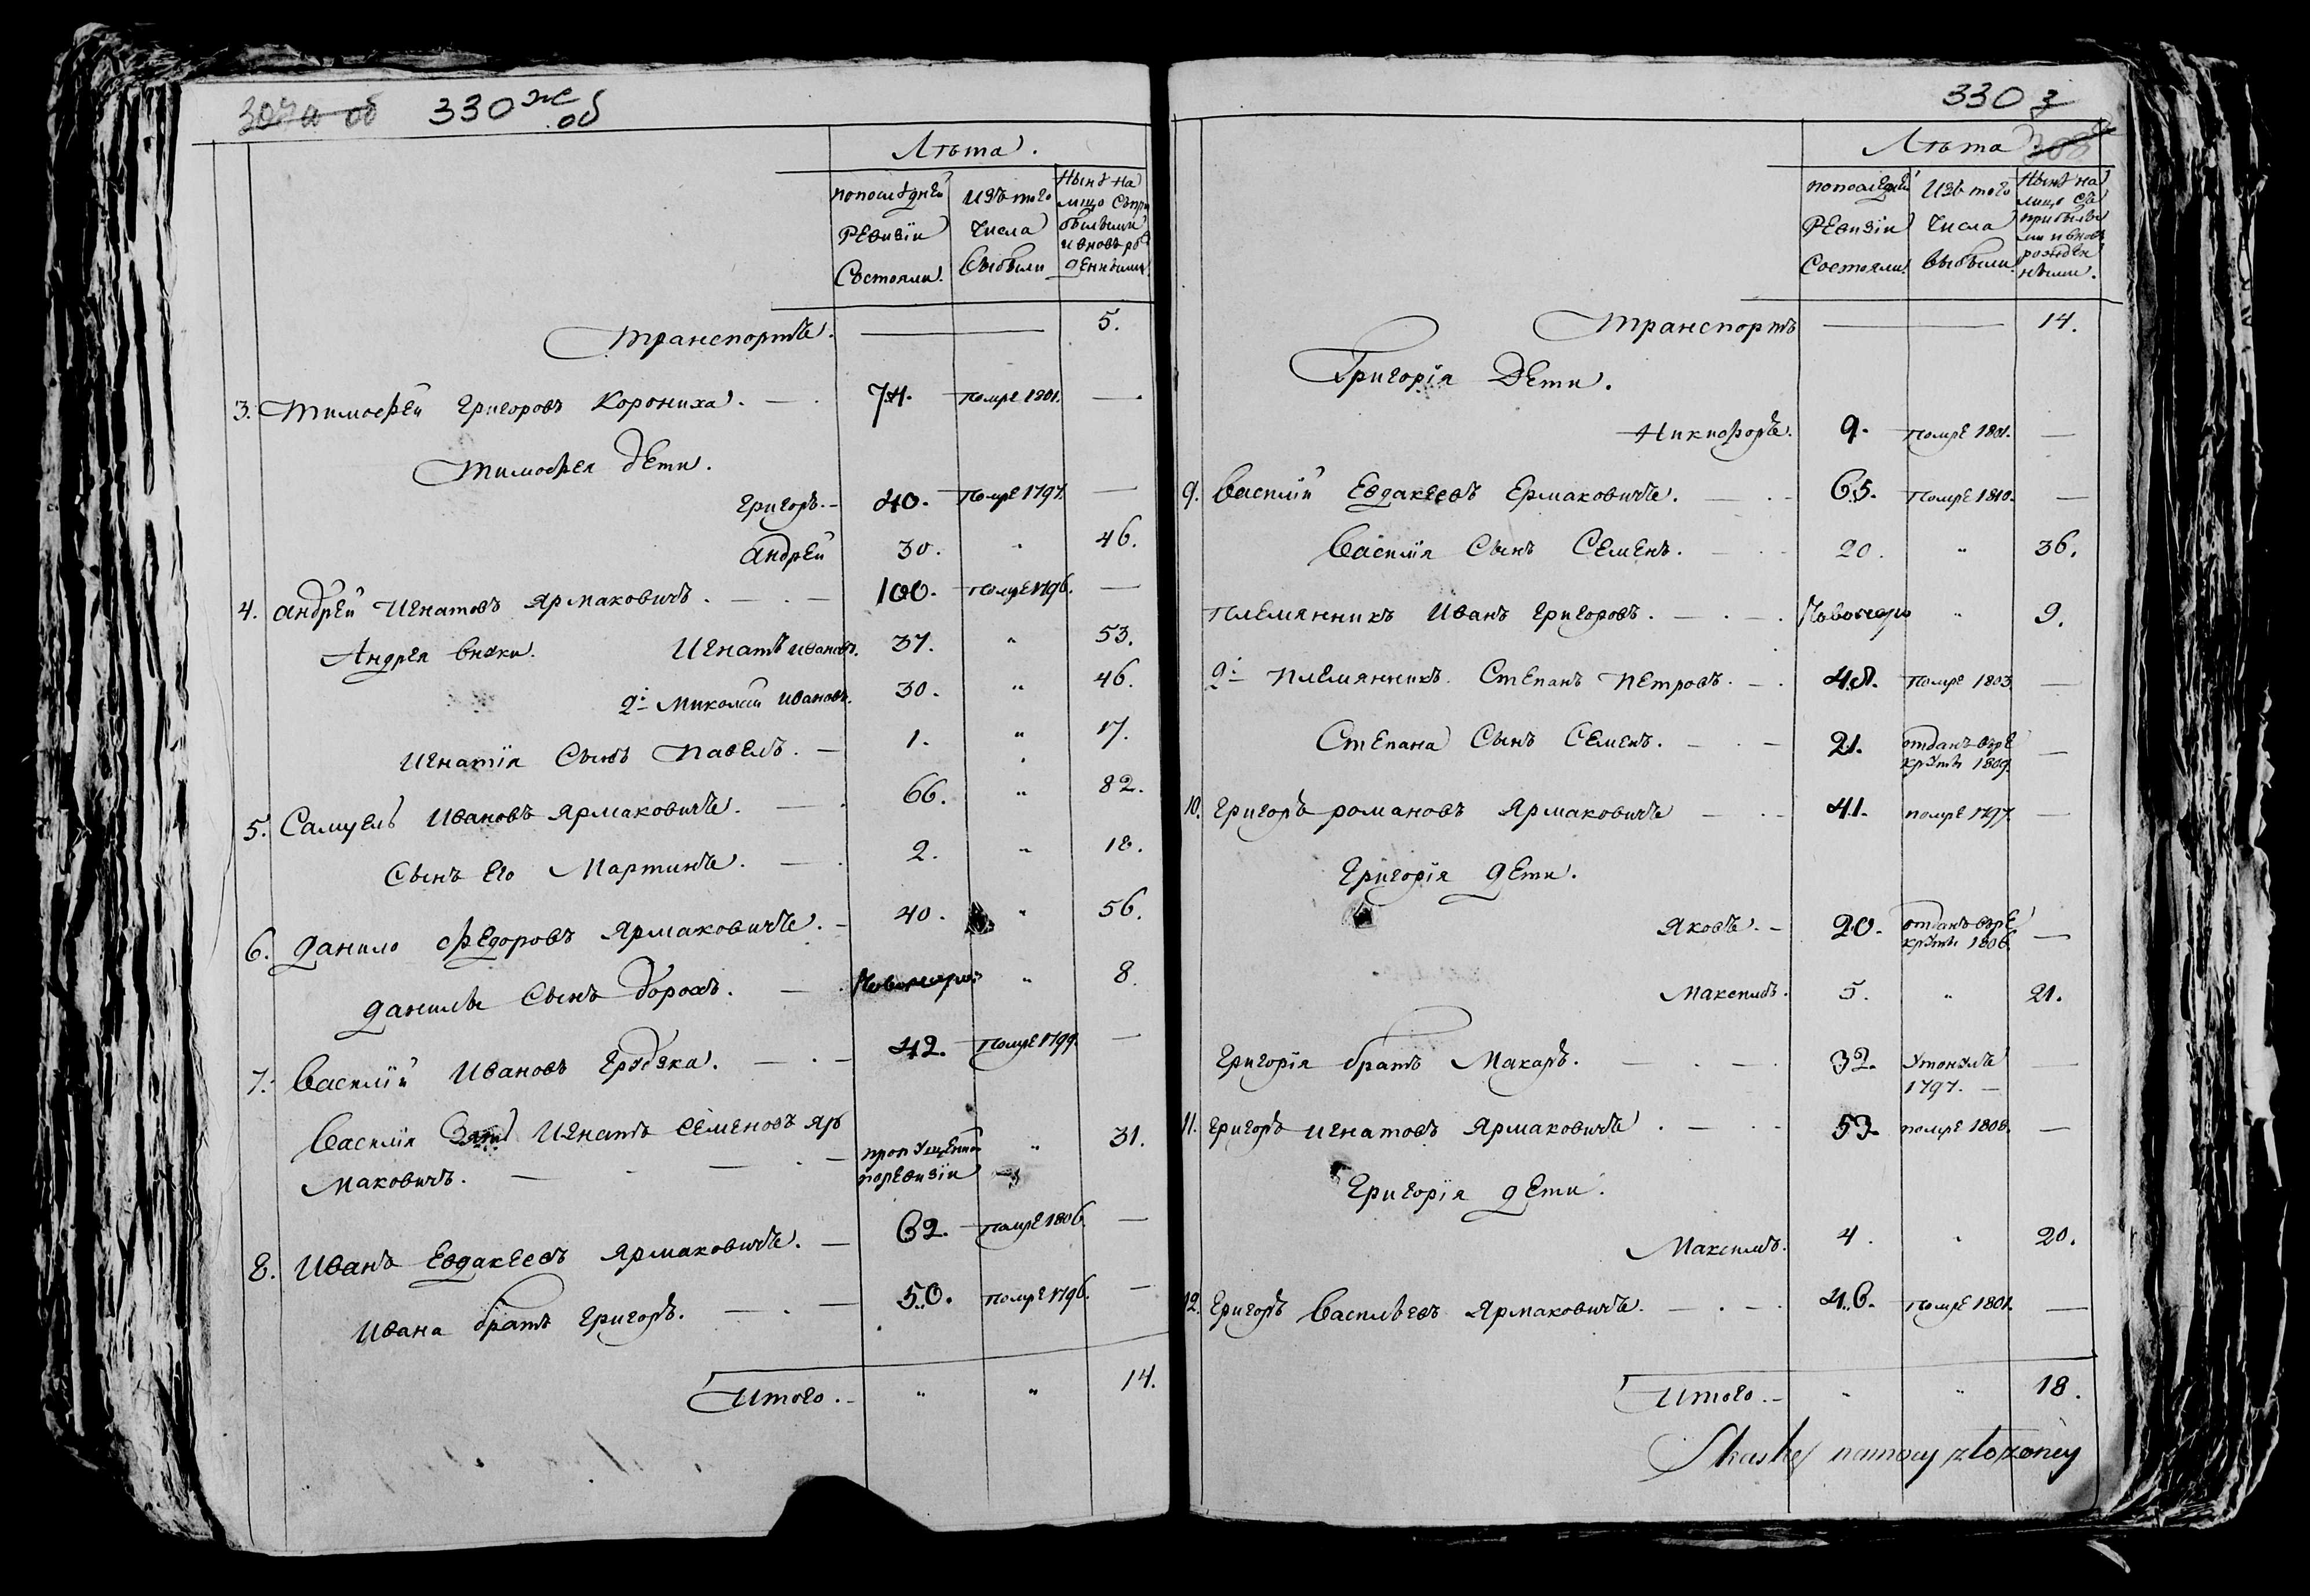 307а об 330 ж об
Лѣта.
попослѣдней ревизіи состояли.
изъ того числа выбыли
нынѣ на лицо съ прибылыми и вновь рожденными.
Транспортъ. — 5.
3. Тимофей Григоровъ Корониха. — 74. помре 1801. —
Тимофея дети.
Григоръ. 40. помре 1797. —
Андрей 30. " 46.
4. Андрей Игнатовъ Ярмаковичъ. — 100. помре 1796. —
Андрея внуки. Игнатъ Ивановъ. 37. " 53.
2й Миколай Ивановъ. 30. " 46.
Игнатія сынъ Павелъ. — 1. " 17.
5. Самуелъ Ивановъ Ярмаковичъ. — 66. " 82.
Сынъ его Мартинъ. — 2. " 18.
6. Данило Федоровъ Ярмаковичъ. — 40. " 56.
Данилы сынъ Борохъ. — Новорож: " 8.
7. Василій Ивановъ Ерузяка. — 42. помре 1799. —
Василія зять Игнатъ Семеновъ Яр
маковичъ. — пропущенъ поревизіи " 31.
8. Иванъ Евдакеевъ Ярмаковичъ. — 62. помре 1806. —
Ивана братъ Григоръ. — 50. помре 1796. —
Итого. " " 14.
330 з
308
Лѣта
попослѣдней ревизіи состояли.
изъ того числа выбыли.
нынѣ на лицо съ прибылыми и вновь рожденными.
Транспортъ — 14.
Григорія дети.
Никифоръ. 9. помре 1801. —
9. Василій Евдакеевъ Ермаковичъ. — 65. помре 1810. —
Василія сынъ Семенъ. — 20. " 36.
племянникъ Иванъ Григоровъ. — Новорож " 9.
2й племянникъ. Степанъ Петровъ. — 48. помре 1803. —
Степана сынъ Семенъ. — 21. отданъ врекруты 1809. —
10. Григоръ Романовъ Ярмаковичъ — 41. помре 1797. —
Григорія дети.
Яковъ. — 20. отданъ врекруты 1806. —
Максимъ. 5. " 21.
Григорія братъ Макаръ. — 32. утонулъ 1797. —
11. Григоръ Игнатовъ Ярмаковичъ. — 53. помре 1808. —
Григорія дети.
Максимъ. 4. " 20.
12. Григоръ Васильевъ Ярмаковичъ. — 46. помре 1801. —
Итого. " " 18.
Skaskę namocy złożoney